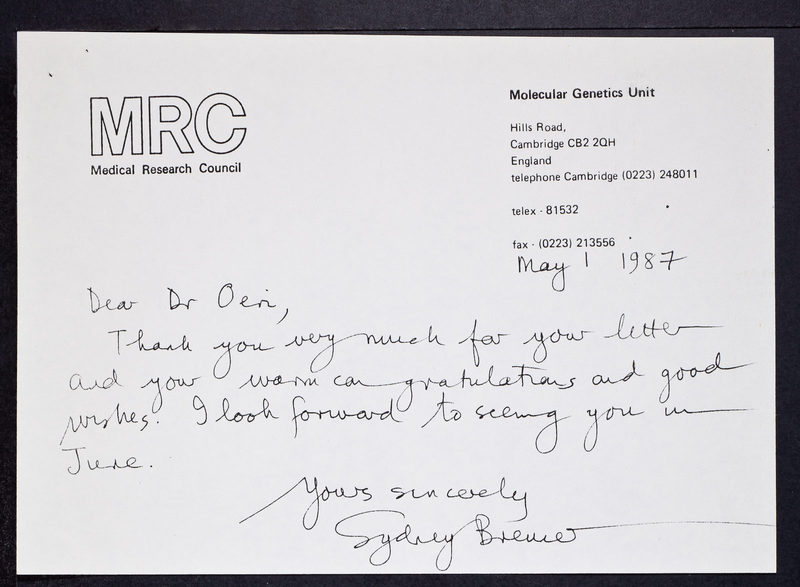 MRC
Medical Research Council
Molecular Genetics Unit
Hills Road,
Cambridge CB2 2QH
England
telephone Cambridge (0223) 248011
telex · 81532
fax · (0223) 213556
May 1 1987
Dear Dr Oeri,
Thank you very much for your letter
and your warm congratulations and good
wishes. I look forward to seeing you in
June.
Yours sincerely
Sydney Brenner